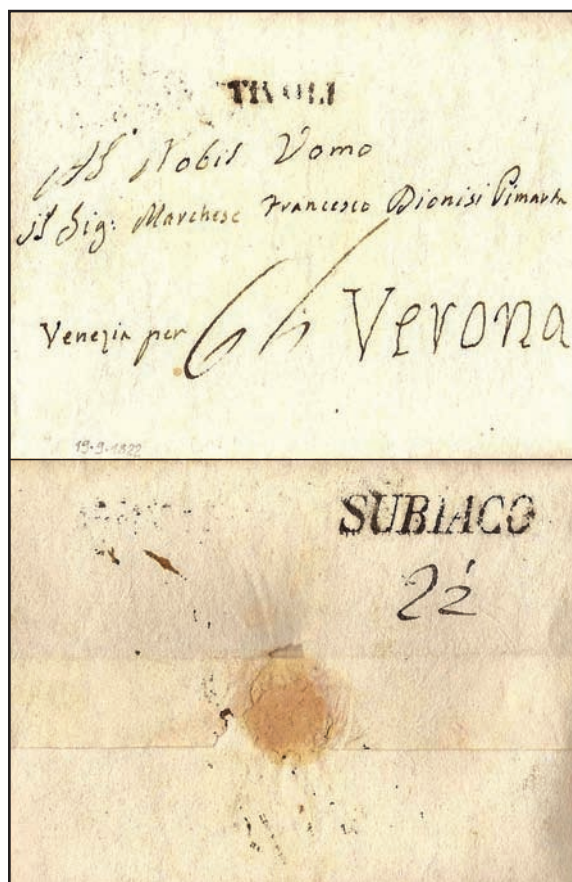 TIVOLI
Al Nobil Vomo
il Sig: Marchese Francesco Dionisi
Venezia per 6 Verona
19-9-1822
SUBIACO
22